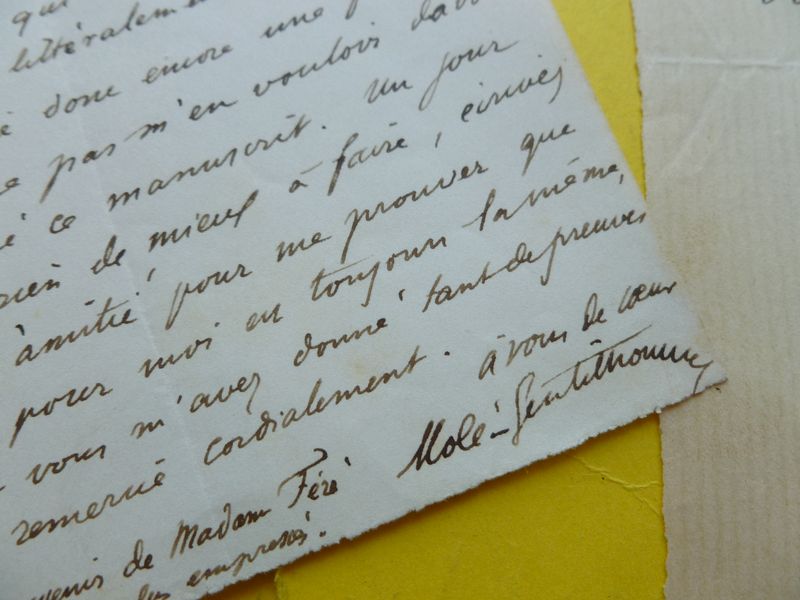 qui
littéralement
donc encore une
pas m'en vouloir d'av
ce manuscrit. Un jour
rien de mieux à faire, écrivez
amitié, pour me prouver que
pour moi est toujours la même,
vous m'avez donné tant de preuves
remercie cordialement. à vous de cœur
Molé-Gentilhomme
de Madam Féré
empressés.